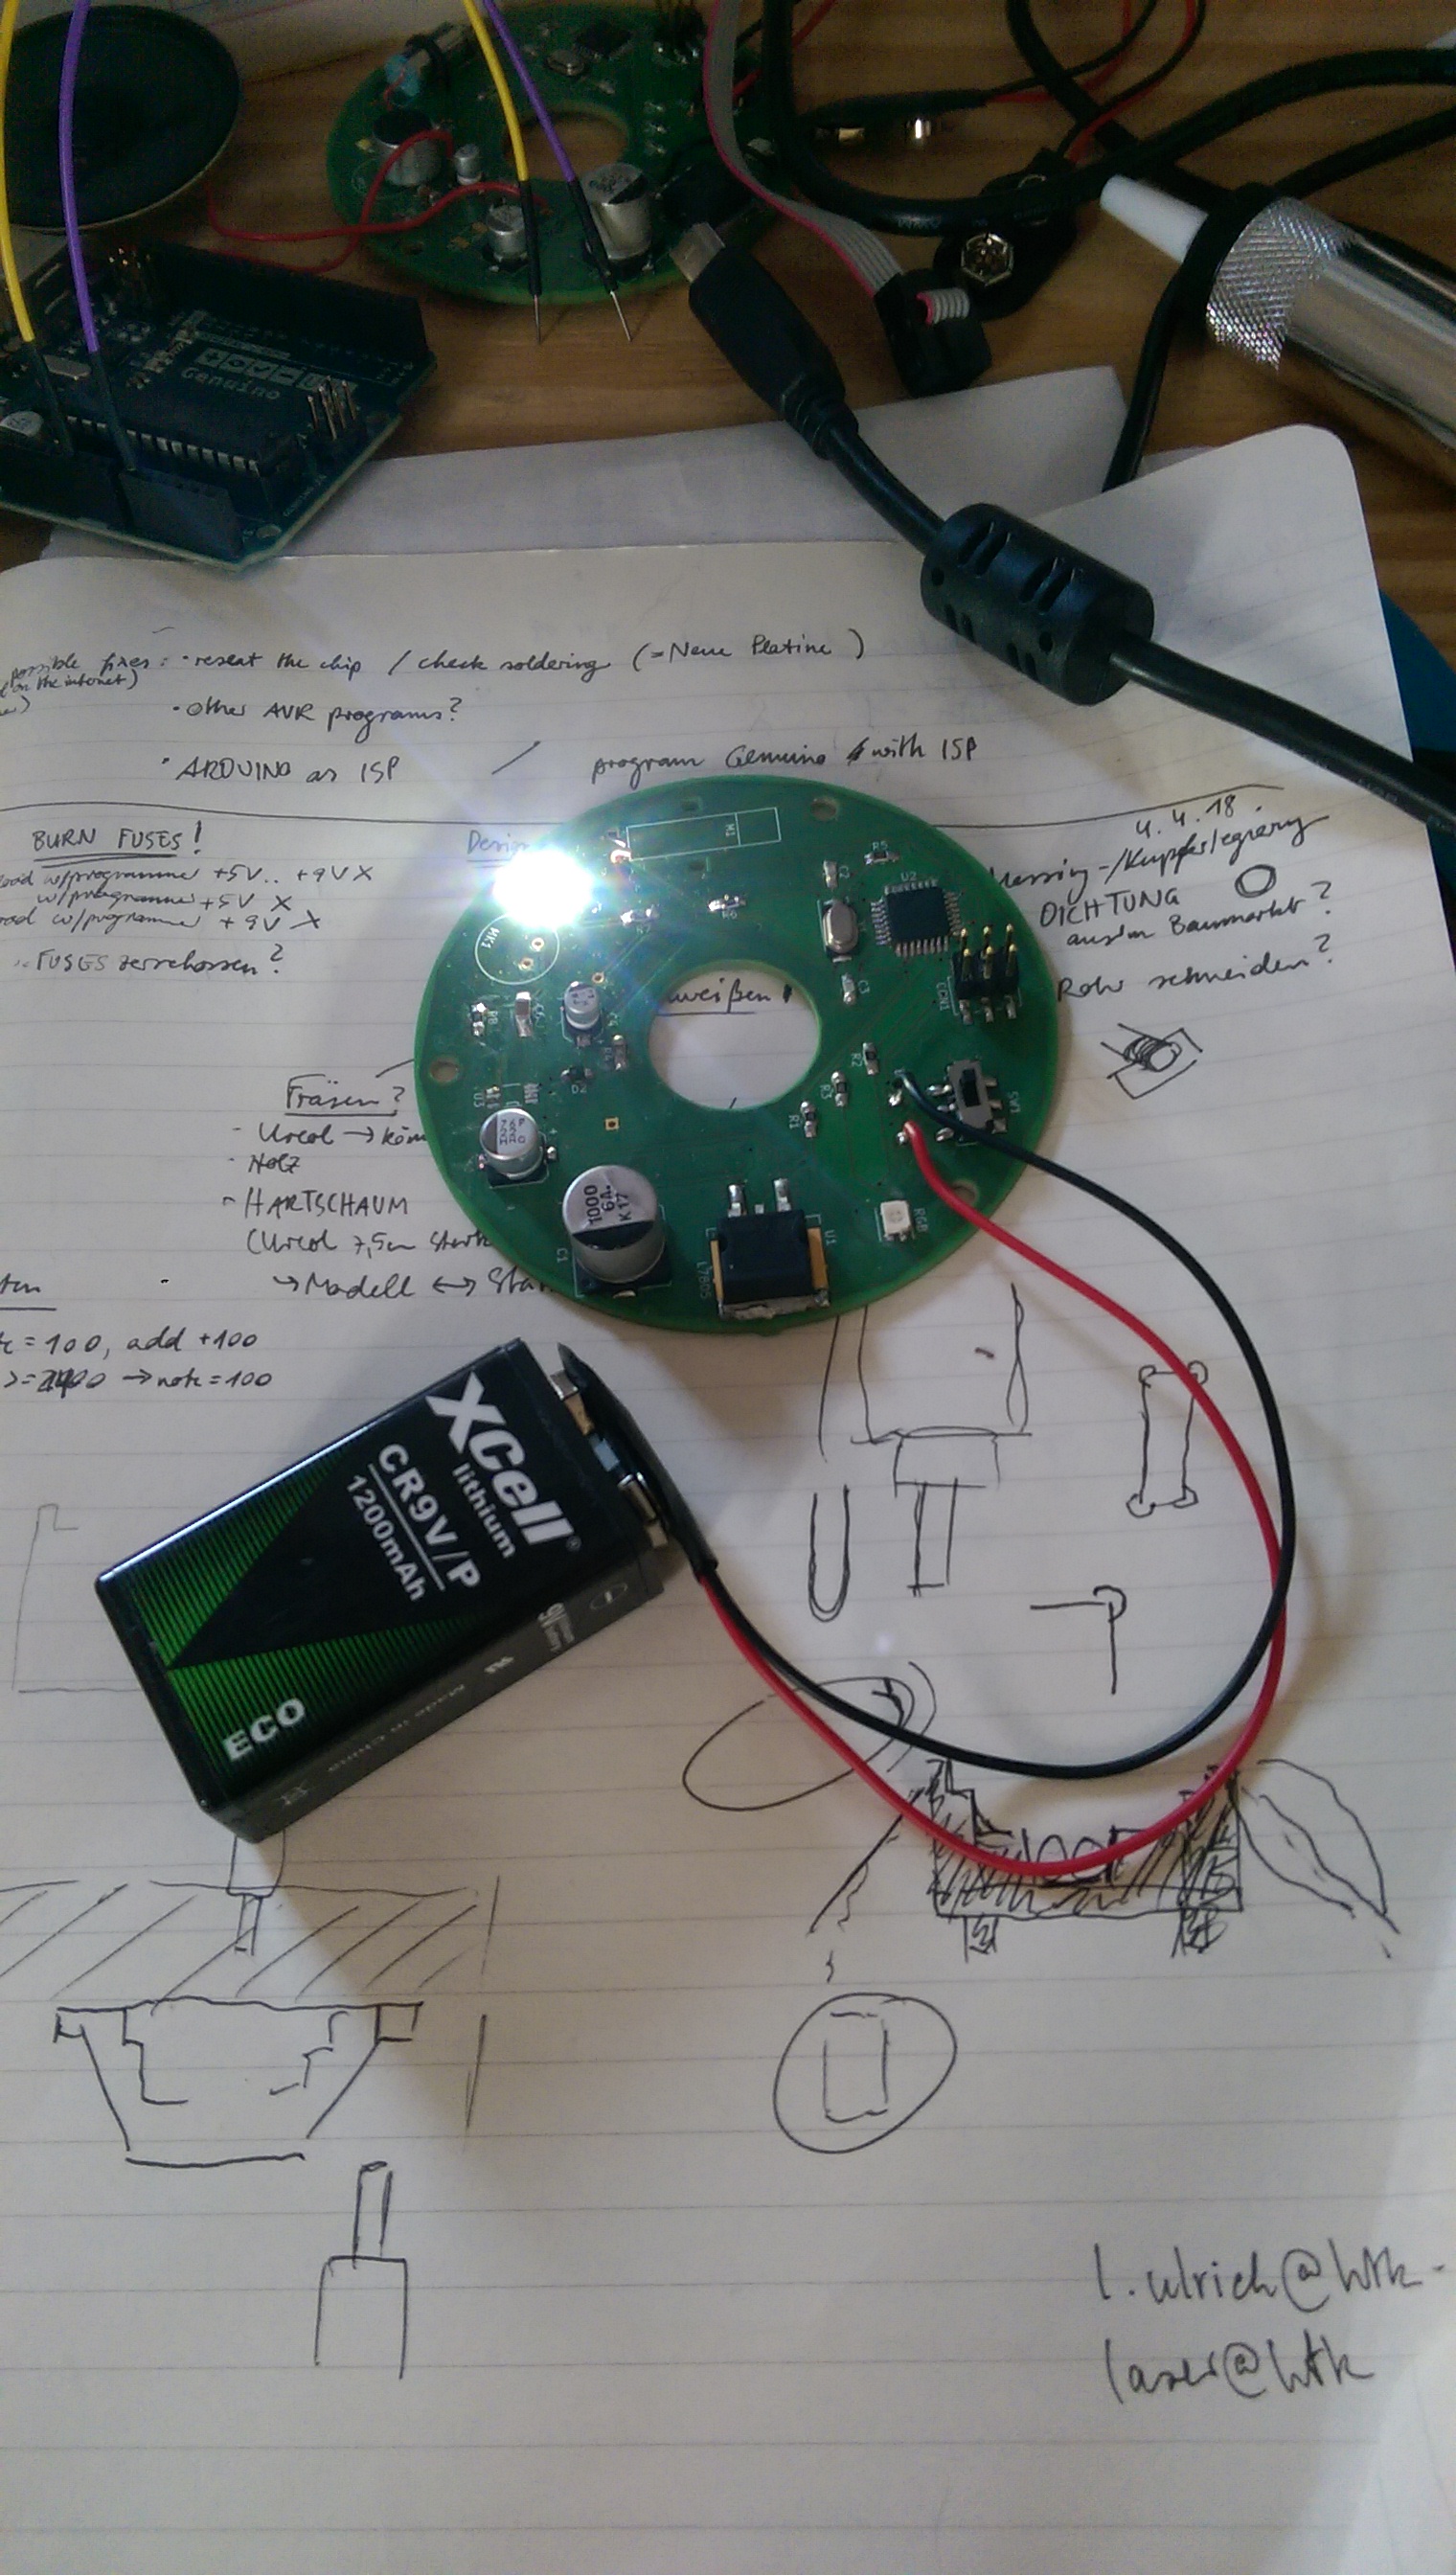 Genuino
possible fixes: · reseat the chip / check soldering (= Neue Platine )
on the internet)
· other AVR programs?
· ARDUINO as ISP / program Genuino with ISP
BURN FUSES!
w/programmer +5V.. +9V X
w/programmer +5V X
w/programmer +9V X
FUSES zerschossen?
4.4.18.
Messing-/Kupferlegierung
DICHTUNG
aus'm Baumarkt?
Rohr schneiden?
Fräsen?
- Ureol →
- Holz
- HARTSCHAUM
(Ureol 7,5cm Stark
→ Modell ↔
= 100, add +100
→ note = 100
M1
R5
C2
U2
MK1
R6
C3
CON1
R8
R2
R3
R1
SW1
U3
RGB
1000
6A.
K17
C1
L7805
U1
XCell®
lithium
CR9V/P
1200mAh
ECO
Made in China
l.ulrich@htk-
laser@htk